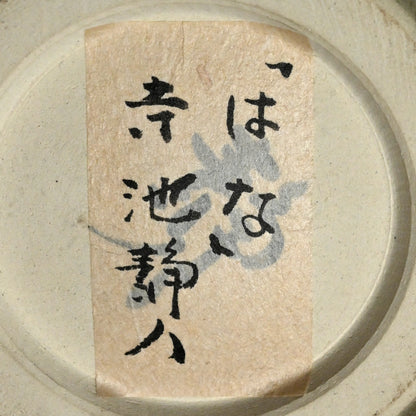 「はな」
寺池静人